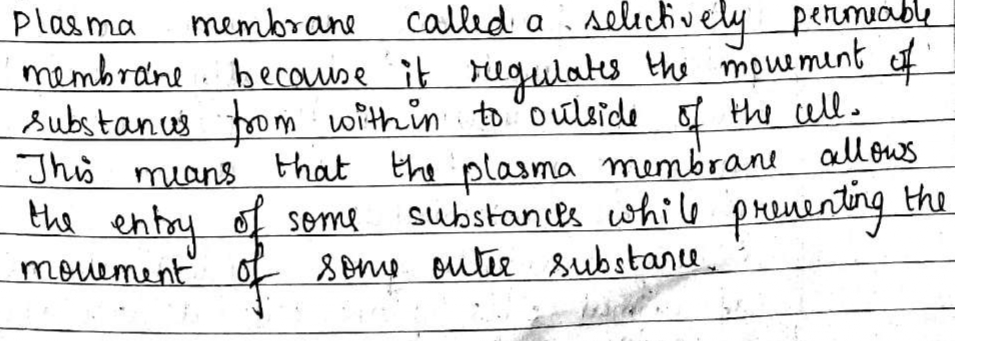 Plasma membrane called a selectively permeable
membrane because it regulates the movement of
substances from within to outside of the cell.
This means that the plasma membrane allows
the entry of some substances while preventing the
movement of some outer substance.